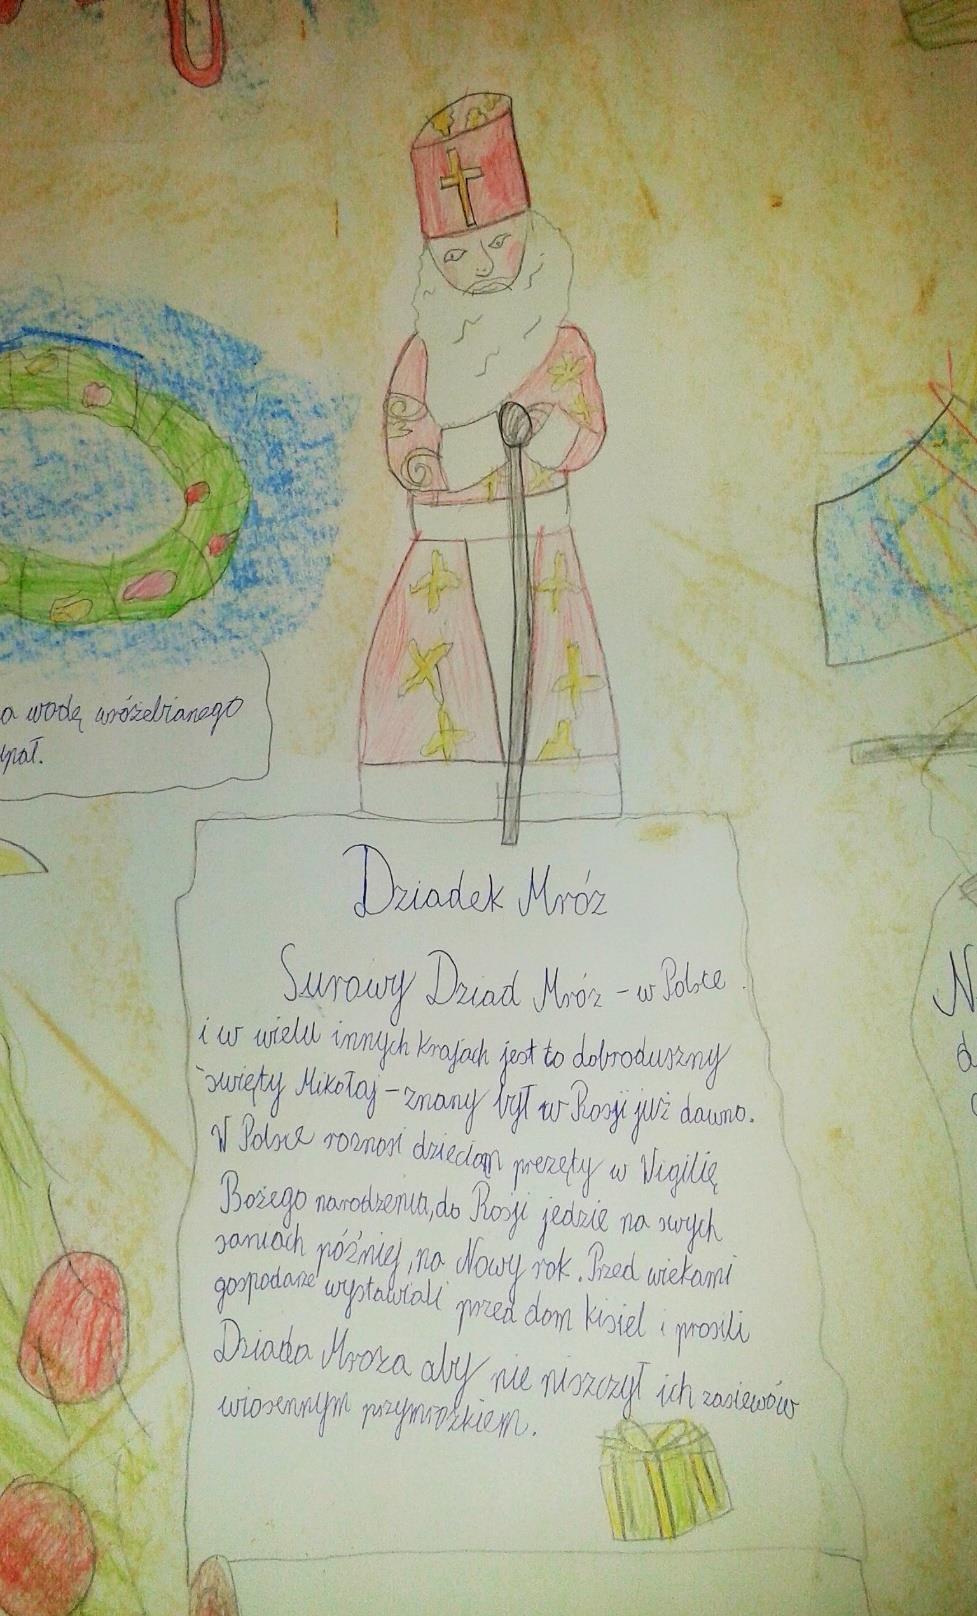 a wodę wróżebianego
Dziadek Mróz
Surowy Dziad Mróz – w Polsce
i w wielu innych krajach jest to dobroduszny
święty Mikołaj – znany był w Rosji już dawno.
W Polsce roznosi dzieciom prezęty w Wigilię
Bożego narodzenia, do Rosji jedzie na swych
saniach później, na Nowy rok. Przed wiekami
gospodarze wystawiali przed dom kisiel i prosili
Dziada Mroza aby nie niszczył ich zasiewów
wiosennym przymrozkiem.